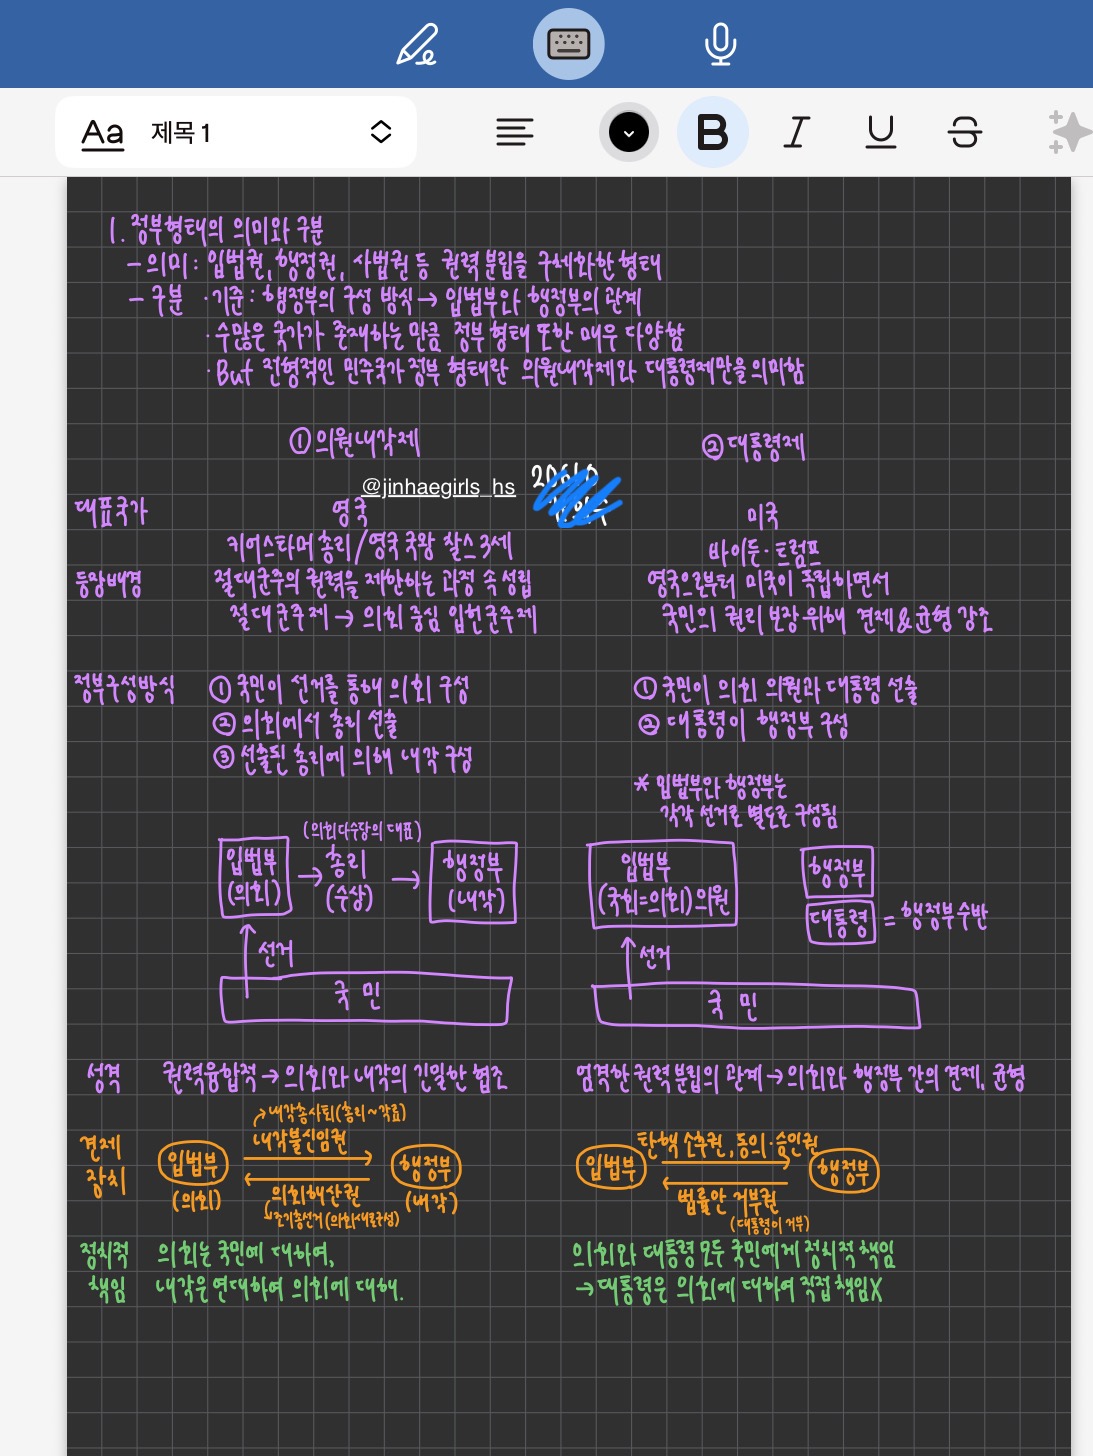 Aa 제목 1 B I U S
1. 정부형태의 의미와 구분
- 의미 : 입법권, 행정권, 사법권 등 권력 분립을 구체화한 형태
- 구분 · 기준 : 행정부의 구성 방식 → 입법부와 행정부의 관계
· 수많은 국가가 존재하는 만큼 정부 형태 또한 매우 다양함
· But 전형적인 민주국가 정부 형태란 의원내각제와 대통령제만을 의미함
① 의원내각제 ② 대통령제
@jinhaegirls_hs
대표국가 영국 미국
키어스타머 총리/영국 국왕 찰스 3세 바이든·트럼프
등장배경 절대군주의 권력을 제한하는 과정 속 성립 영국으로부터 미국이 독립하면서
절대군주제 → 의회 중심 입헌군주제 국민의 권리 보장 위해 견제&균형 강조
정부구성방식 ① 국민이 선거를 통해 의회 구성 ① 국민이 의회 의원과 대통령 선출
② 의회에서 총리 선출 ② 대통령이 행정부 구성
③ 선출된 총리에 의해 내각 구성
* 입법부와 행정부는
각각 선거로 별도로 구성됨
(의회다수당의 대표)
입법부 → 총리 → 행정부 입법부 행정부
(의회) (수상) (내각) (국회=의회)의원 대통령 = 행정부수반
선거 선거
국민 국민
성격 권력융합적 → 의회와 내각의 긴밀한 협조 엄격한 권력 분립의 관계 → 의회와 행정부 간의 견제, 균형
내각총사퇴(총리~각료)
견제 내각불신임권 탄핵 소추권, 동의·승인권
장치 입법부 행정부 입법부 행정부
(의회) 의회해산권 (내각) 법률안 거부권
조기총선거(의회새로구성) (대통령이 거부)
정치적 의회는 국민에 대하여, 의회와 대통령 모두 국민에게 정치적 책임
책임 내각은 연대하여 의회에 대해. → 대통령은 의회에 대하여 직접 책임X